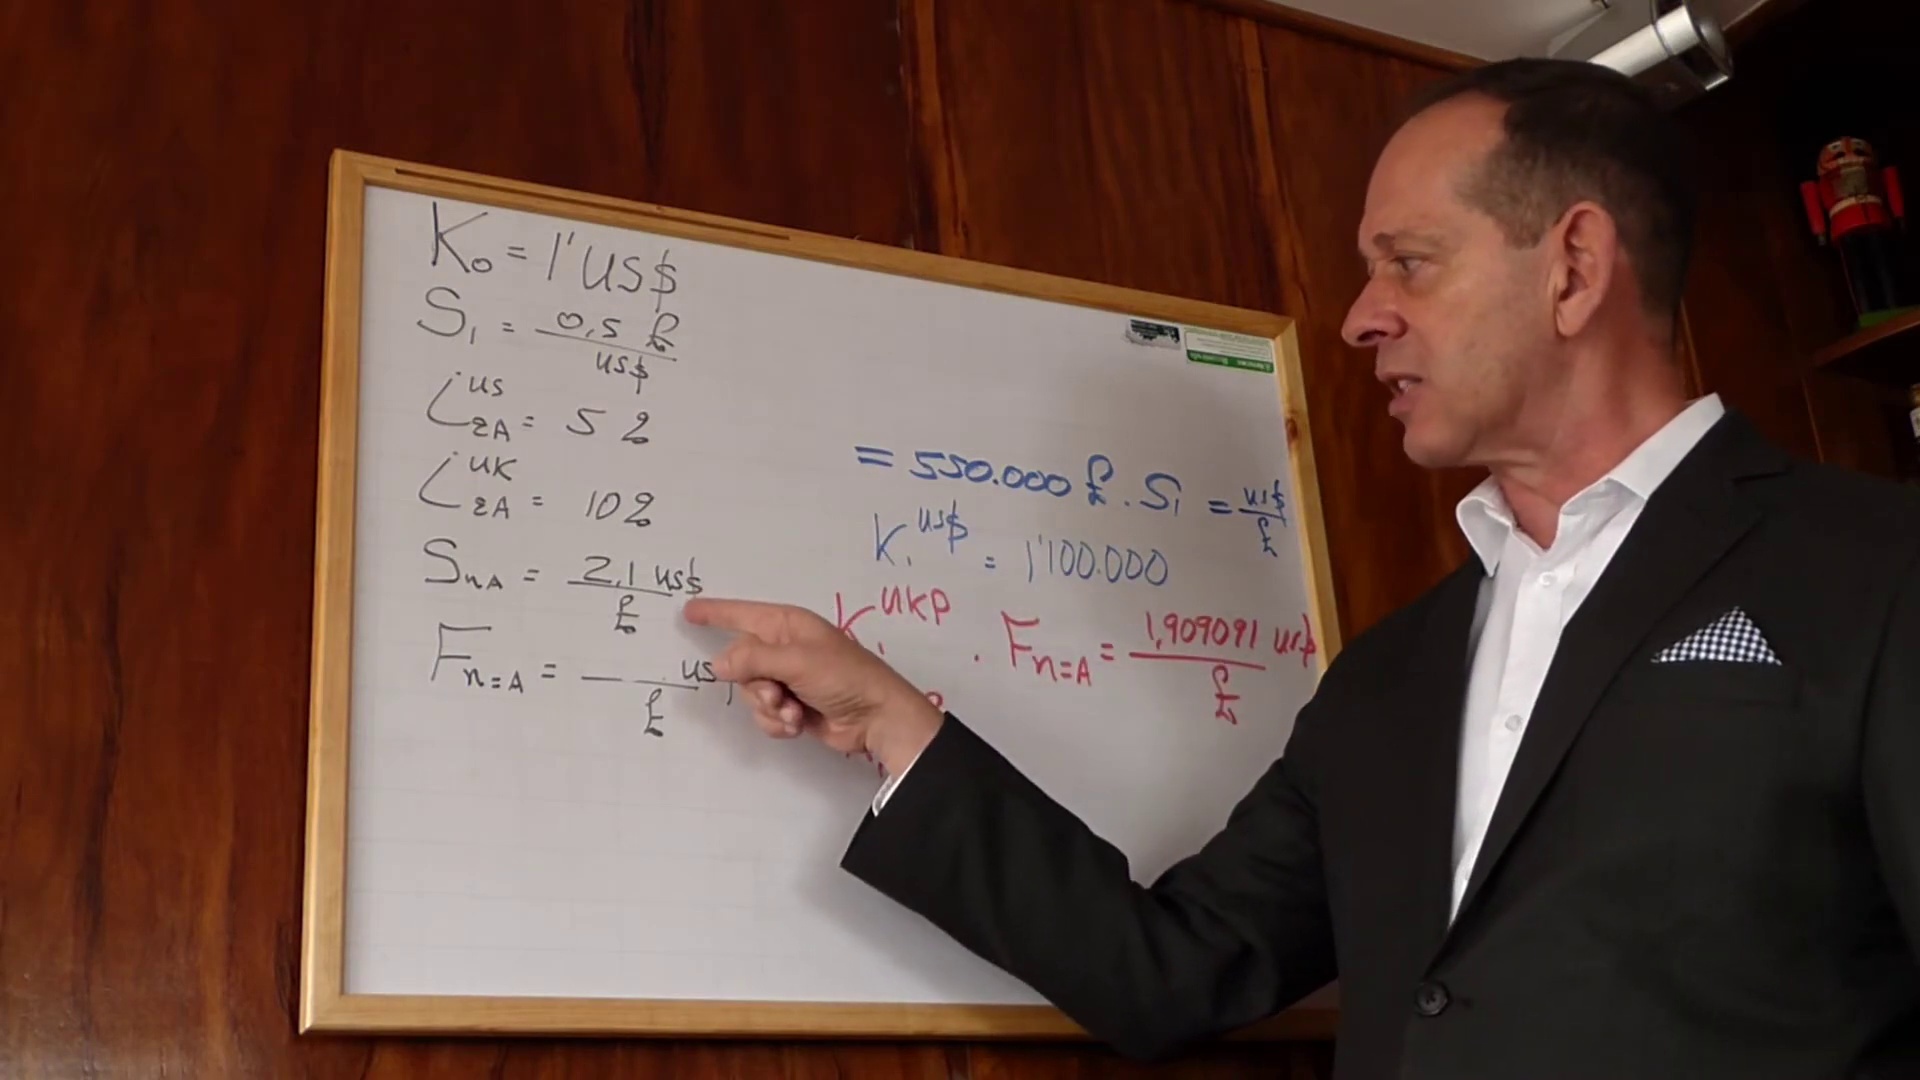 K₀ = 1' US$
S₁ = 0,5 £ / US$
i US ΣA = 5 %
i UK ΣA = 10 %
S nA = 2.1 US$ / £
F n=A = US / £
= 550.000 £ . S₁ = US$ / £
K₁ US$ = 1'100.000
K UKP . F n=A = 1,909091 US$ / £